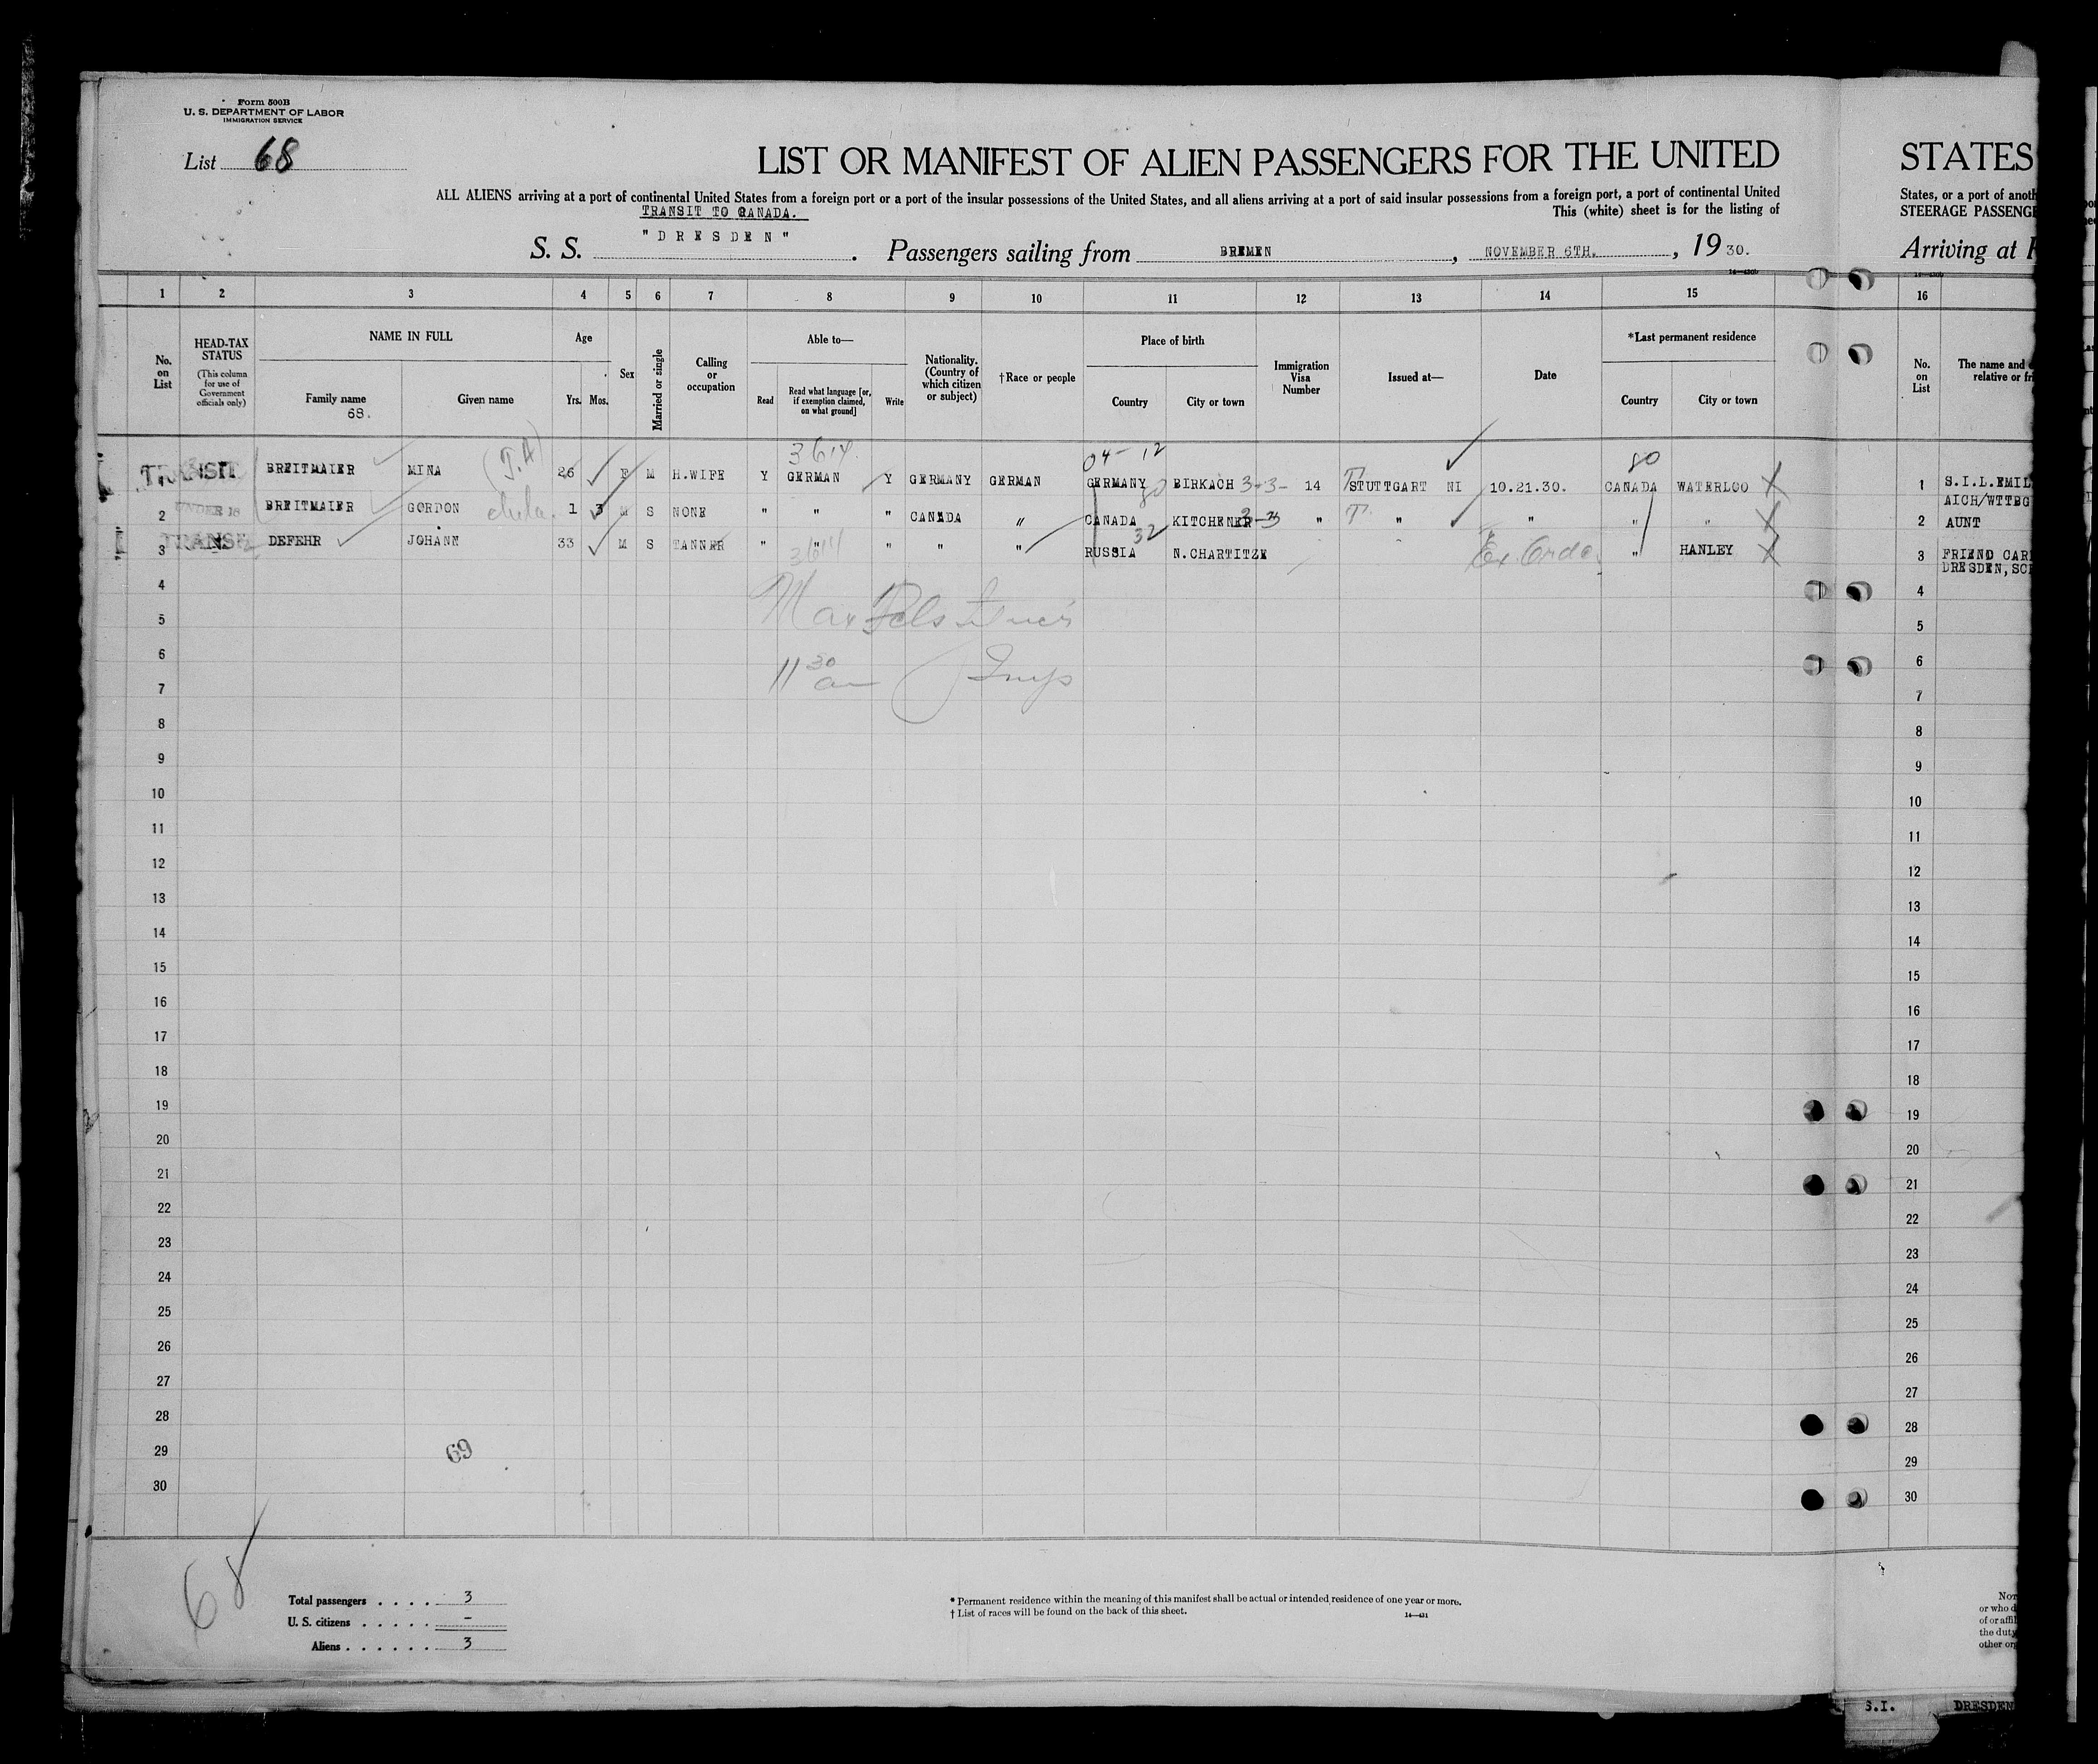 Form 500B
U. S. DEPARTMENT OF LABOR
IMMIGRATION SERVICE
List 68
LIST OR MANIFEST OF ALIEN PASSENGERS FOR THE UNITED
STATES
ALL ALIENS arriving at a port of continental United States from a foreign port or a port of the insular possessions of the United States, and all aliens arriving at a port of said insular possessions from a foreign port, a port of continental United
States, or a port of anoth
TRANSIT TO CANADA.
This (white) sheet is for the listing of
STEERAGE PASSENGE
S. S. "DRESDEN". Passengers sailing from BREMEN, NOVEMBER 6TH., 19 30.
Arriving at
1 2 3 4 5 6 7 8 9 10 11 12 13 14 15 16
No. on List
HEAD-TAX STATUS
(This column for use of Government officials only)
NAME IN FULL
Family name
68.
Given name
Age
Yrs. Mos.
Sex
Married or single
Calling or occupation
Able to—
Read
Read what language [or, if exemption claimed, on what ground]
Write
Nationality. (Country of which citizen or subject)
†Race or people
Place of birth
Country
City or town
Immigration Visa Number
Issued at—
Date
*Last permanent residence
Country
City or town
No. on List
The name and
relative or fri
3614
04- 12
80
1 TRANSIT BREITMAIER MINA (T.A) 26 F M H.WIFE Y GERMAN Y GERMANY GERMAN GERMANY BIRKACH 3-3- 14 STUTTGART NI 10.21.30. CANADA WATERLOO 1 S.I.L.EMIL
AICH/WTTBG
2 UNDER 16 BREITMAIER GORDON 1 3 M S NONE " " " CANADA " CANADA KITCHENER " " " " " 2 AUNT
3 TRANSIT DEFEHR JOHANN 33 M S TANNER " " " " " RUSSIA N.CHARTITZE " HANLEY 3 FRIEND CAR
DRESDEN,SC
3614
32
4 4
5 5
6 11 30 6
7 7
8 8
9 9
10 10
11 11
12 12
13 13
14 14
15 15
16 16
17 17
18 18
19 19
20 20
21 21
22 22
23 23
24 24
25 25
26 26
27 27
28 28
29 69 29
30 30
68
Total passengers . . . . 3
U. S. citizens . . . . . –
Aliens . . . . . . 3
* Permanent residence within the meaning of this manifest shall be actual or intended residence of one year or more.
† List of races will be found on the back of this sheet.
14—431
or who d
of or affil
the duty
other or
S.I. DRESDEN